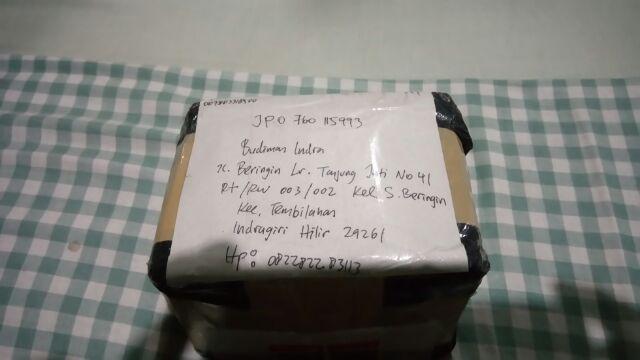 JPO 760 115993
Budiman Indra
Jl. Beringin Lr. Tanjung Jati No 41
Rt/RW 003/002 Kel S. Beringin
Kec. Tembilahan
Indragiri Hilir 29261
Hp: 0822822 83113